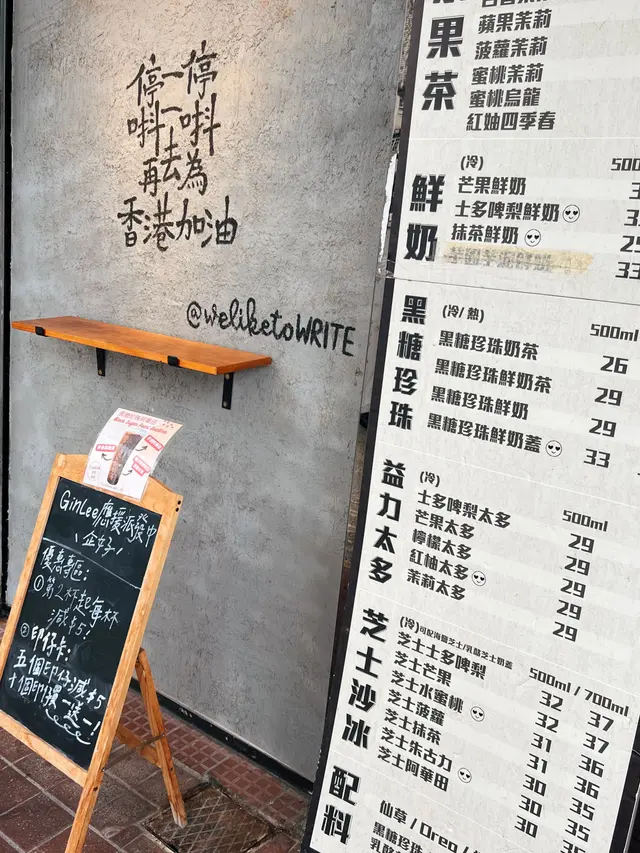 停一停
唞一唞
再去為
香港加油
@weliketoWRITE
GinLee應援派發中
企好!
優惠專區:
①第2杯起每杯
減$5!
②印仔卡:
五個印仔減$5
十個印買一送一!
果茶
蘋果茉莉
菠蘿茉莉
蜜桃茉莉
蜜桃烏龍
紅妯四季春
鮮奶
(冷)
芒果鮮奶
士多啤梨鮮奶
抹茶鮮奶
33
黑糖珍珠
(冷/熱) 500ml
黑糖珍珠奶茶 26
黑糖珍珠鮮奶茶 29
黑糖珍珠鮮奶 29
黑糖珍珠鮮奶蓋 33
益力太多
(冷) 500ml
士多啤梨太多 29
芒果太多 29
檸檬太多 29
紅柚太多 29
茉莉太多 29
芝士沙冰
(冷)可配海鹽芝士/乳酪芝士奶蓋 500ml / 700ml
芝士士多啤梨 32 37
芝士芒果 32 37
芝士水蜜桃 31 36
芝士菠蘿 31 36
芝士抹茶 30 35
芝士朱古力 30 35
芝士阿華田 30 35
配料
仙草 / Oreo /
黑糖珍珠